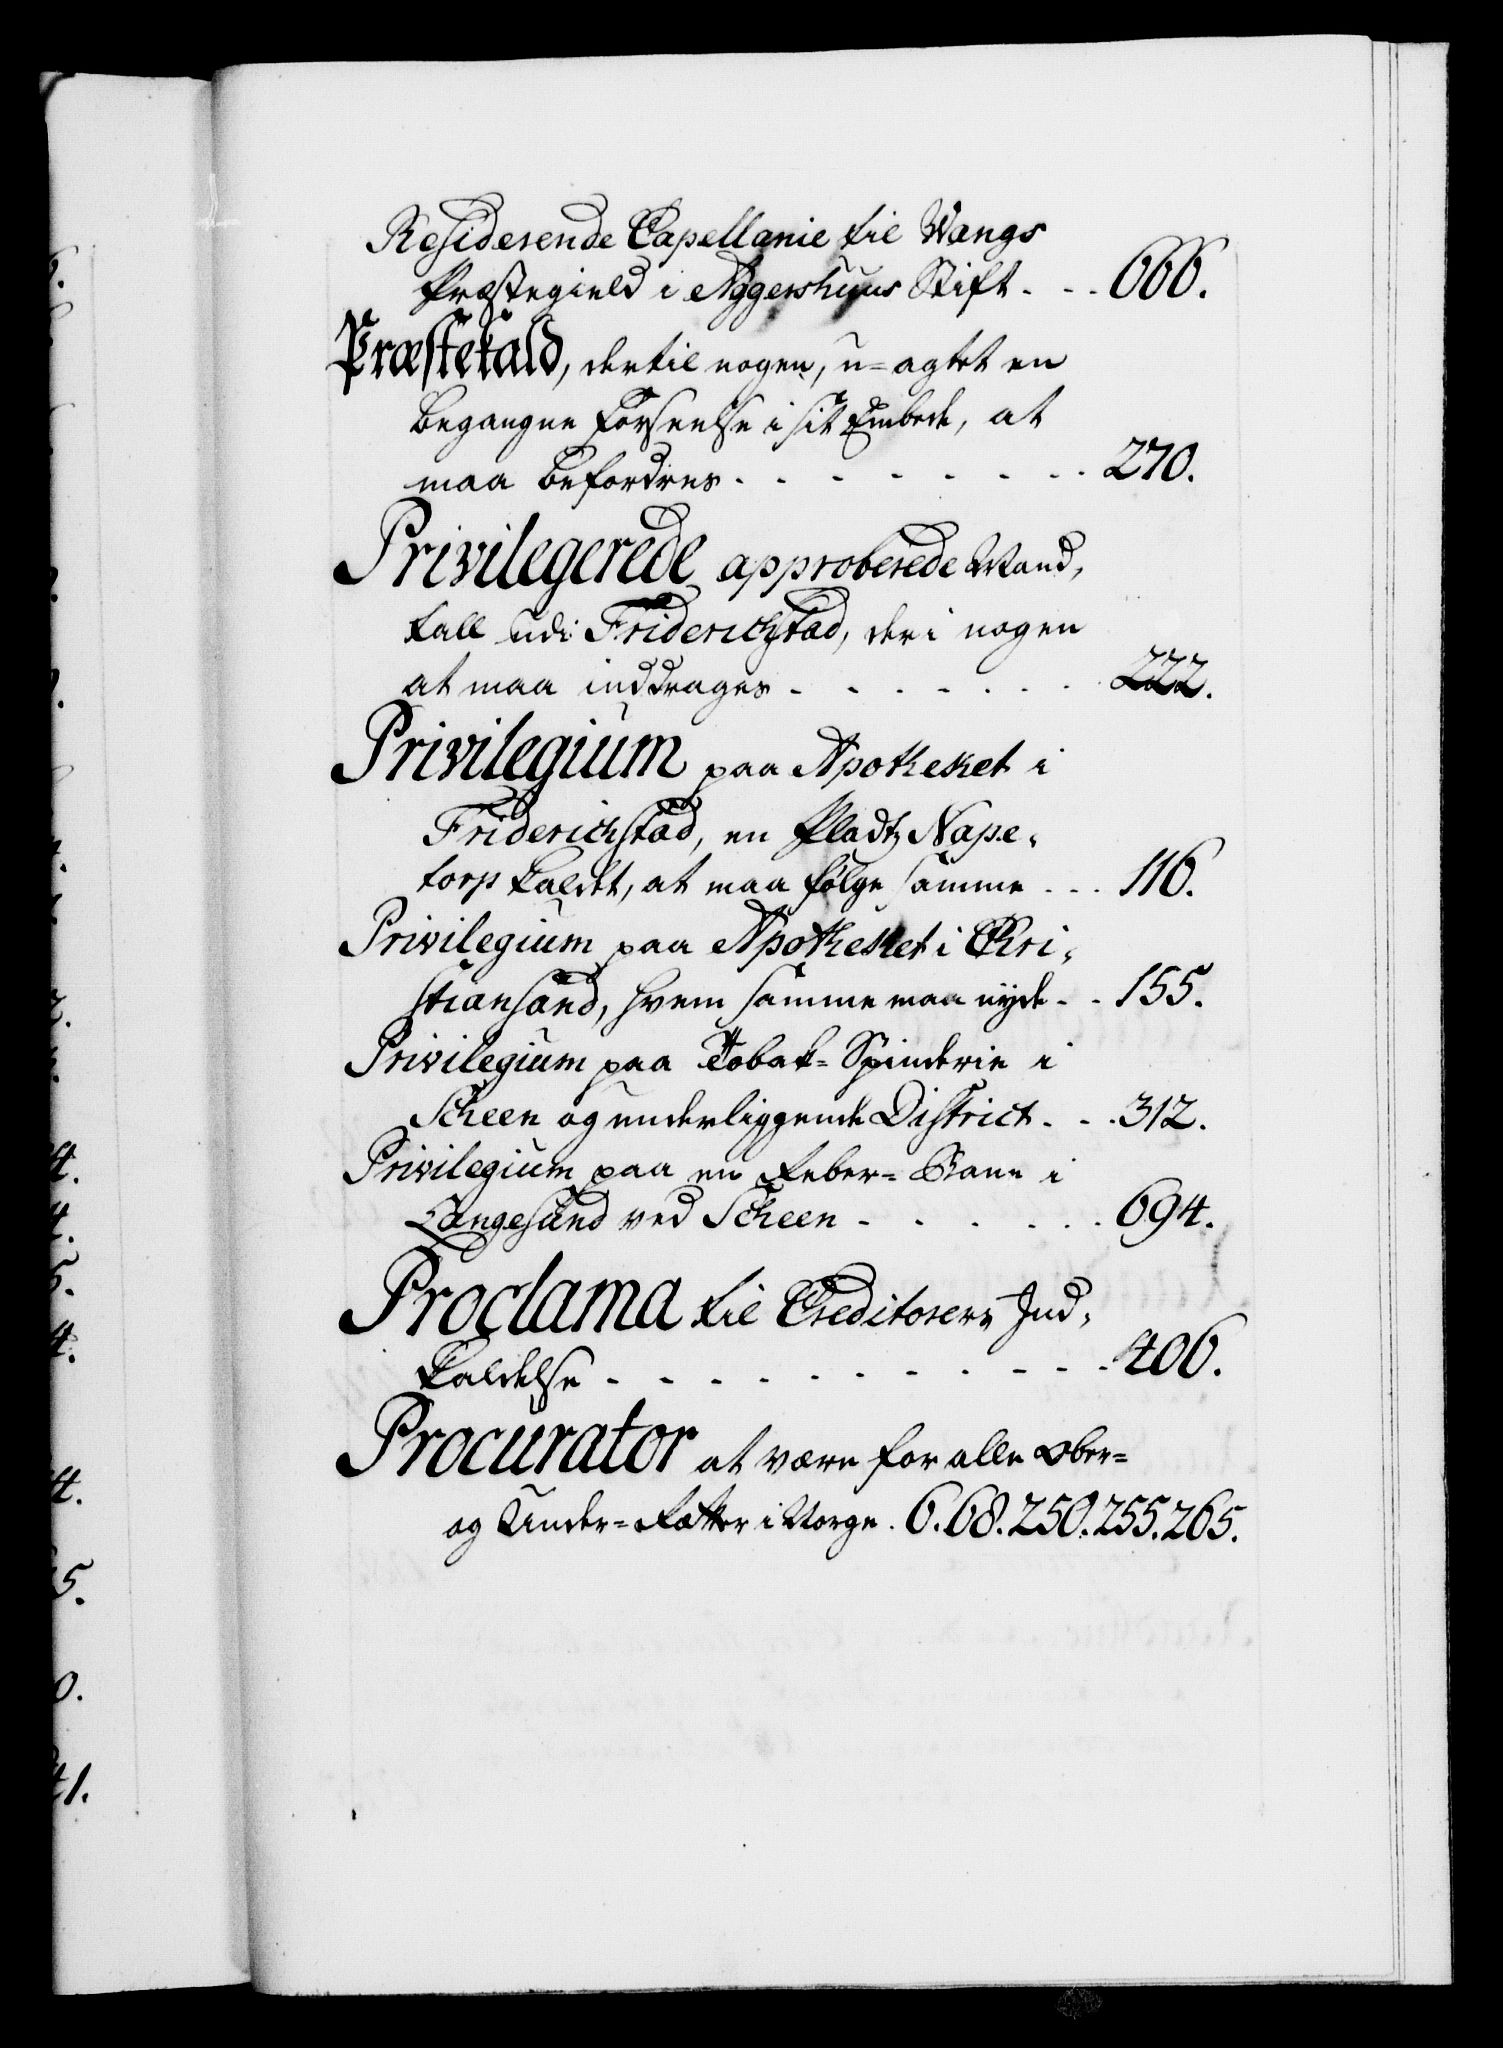 Residerende Capellanie til Wangs
Præstegield i Aggershuus Stift. - . 666.
Præstekald, dertil nogen, u=agtet en
begangne Forseelse i sit Embede, at
maa befordres . - - - - - - . 270.
Privilegerede approberede Mand,
tall udi Friderichstad, der i nogen
at maa inddrages . - - - - . . 222.
Privilegium paa Apotheket i
Friderichstad, en Pladtz Nape,
torp kaldet, at maa følge samme . . . 116.
Privilegium paa Apotheket i Chri,
stiansand, hvem samme maa nyde - . 155.
Privilegium paa Tobak= Spinderie i
Scheen og underliggende District . - . 312.
Privilegium paa en Reber= Bane i
Langesund ved Scheen - . . . . . 694.
Proclama til Creditorers Ind,
kaldelse - - - - - - - - - - . 406.
Procurator at være for alle Over=
og Under= Retter i Norge . 6. 68. 250. 255. 265.
6.
4.
4.
5.
4.
4.
5.
0.
41.